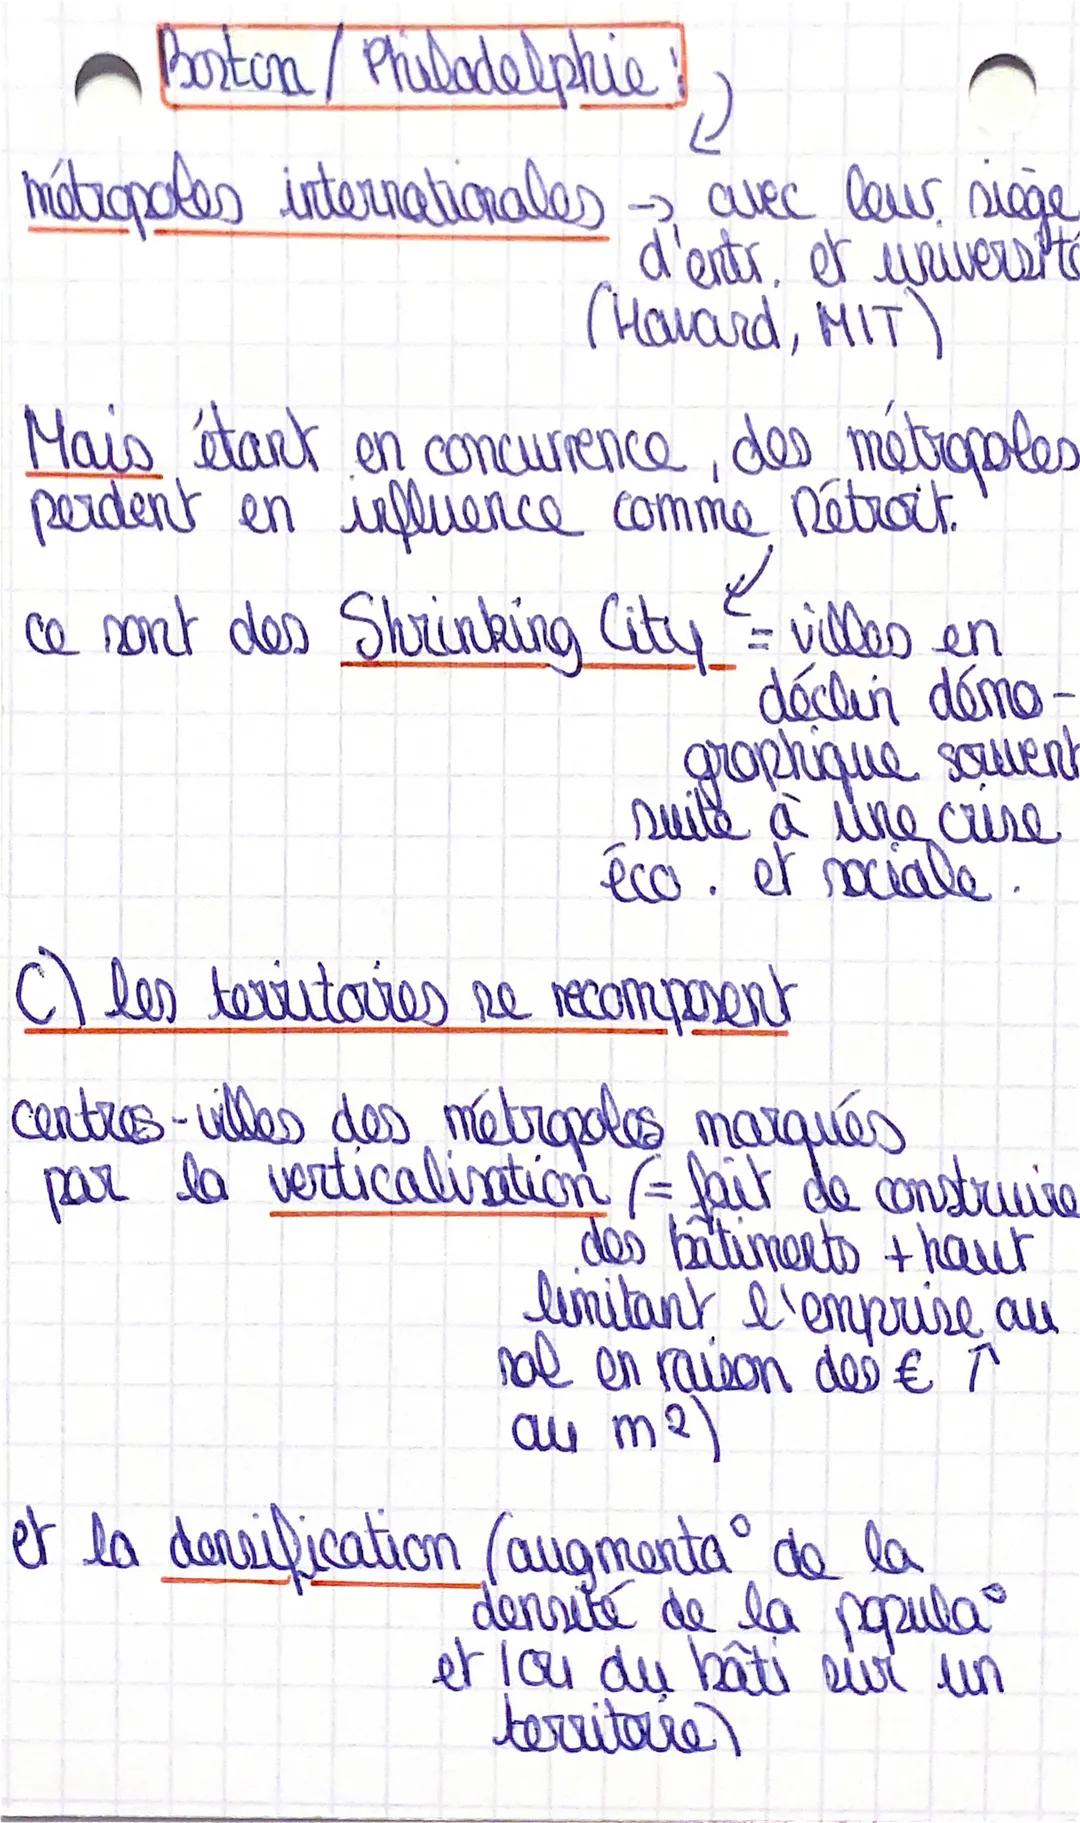 Boston / Philadelphie :
métropoles internationales → avec leur siège
d'entr. et université
(Havard, MIT)
Mais étant en concurrence, des métropoles
perdent en influence comme Détroit.
ce sont des Shrinking City = villes en
déclin démo-
graphique souvent
suite à une crise
éco. et sociale.
C) les territoires se recomposent
centres-villes des métropoles marqués
par la verticalisation (= fait de construire
des bâtiments + haut
limitant l'emprise au
sol en raison des € ↑
au m2)
et la densification (augmenta° de la
densité de la popula°
et/ou du bâti sur un
territoire)